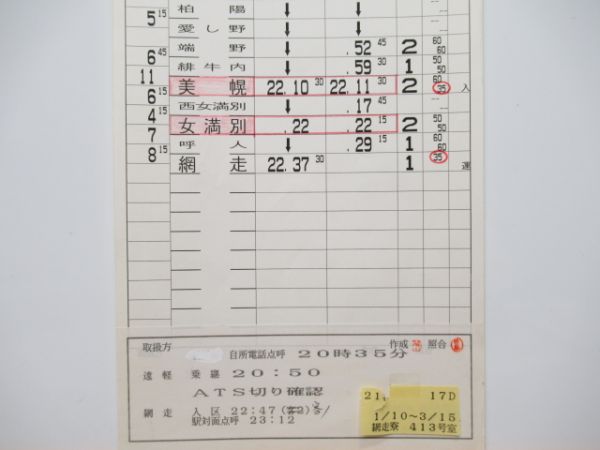 柏陽 ↓ ↓
5 15
愛し野 ↓ ↓
端野 ↓ .52 45 2 60 60
6 45
緋牛内 ↓ .59 30 1 50 50
11
美幌 22.10 30 22.11 30 2 60 35 入
6 15
西女満別 ↓ .17 45
4 15
女満別 .22 .22 15 2 50 50
7
呼人 ↓ .29 15 1 60 60
8 15
網走 22.37 30 1 35 運
取扱方 作成 照合
自所電話点呼 20時35分
遠軽 乗継 20:50
ATS切り確認
網走 入区 22:47
駅対面点呼 23:12
21 17D
1/10~3/15
網走寮 413号室